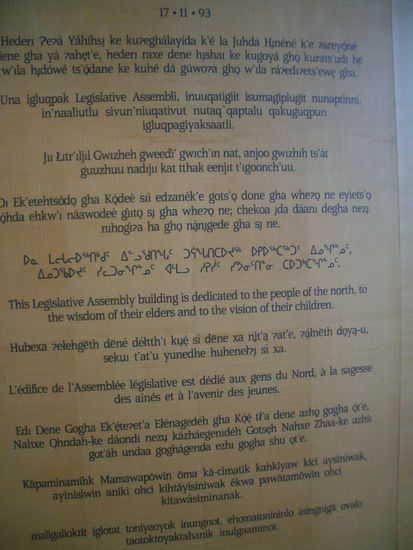 17 • 11 • 93
Hederı Ɂeɂa Yáhı́hsı ke kuɂeghálayı́da k'é la Juhdá Hı̨néné k'e ɂareyǫ́né
dene gha yá ɂahę́t'e, hederı raxe dene hı̨shaı ke kugoyá ghǫ kurats'udı hé
w'ıla hı̨dówé ts'ǫ́dane ke kuhé dá gúwoɂa ghǫ w'ıla ráɂedıɂets'ewę gha.
Una igluqpak Legislative Assembli, inuuqatigiit isumagiplugit nunaptinni,
in'naaliutlu sivun'niuqativut nutaq˙qaptalu qakuguqpun
igluqpagiyaksaatli.
Jıı Łıtr'ıljıl Gwızheh gweedı̀' gwıch'ın nat, anjoo gwızhıh ts'àt
guuzhuu nadıju kat tthak eenjıt t'ıgoonch'uu.
Dı Ek'etehtsǫdǫ gha Kǫ̀deè sıı̀ edzanèk'e gots'ǫ done gha wheɂǫ ne eyıets'ǫ
ehkw'ı nàawodeè gı̨ıtǫ sı̨ gha wheɂǫ ne; chekoa ı̨da dàanı degha nezı̨
nıhogı̀ɂa ha gǫ nàı̨nıgede gha sı̨ ne.
This Legislative Assembly building is dedicated to the people of the north, to
the wisdom of their elders and to the vision of their children.
Hubexa ɂelehgëth dëné dëłtth'ı kųę́ sı́ dëne xa nı̨t'ą ɂat'e, ɂąłnëth dǫyą-u,
sekuı t'at'u yunedhe huhenełɂı̨ sı́ xa.
L'édifice de l'Assemblée législative est dédié aux gens du Nord, à la sagesse
des aînés et à l'avenir des jeunes.
Edı Dene Gogha Ek'ę́teɂet'a Ełénagedéh gha Kǫ́ę́ tł'a dene azhǫ gogha ǫt'e,
Nahxe Ǫhndah-ke dáondı nezų kázháegenıdéh Gotsęh Nahxe Zhaa-ke azhıı
got'áh undaa goghágenda ezhı gogha shu ǫt'e.
Kâpaminamihk Mamawapôwin ôma kâ-cimatik kahkîyaw kici aysiniwak,
ayinisiwin aniki ohci kihtâyisiniwak êkwa pawâtamôwin ohci
kitawâsiminanak.
maligalioktit iglotat toniyaoyok inungnot, ehomatonininlo iningnigit ovalo
taotoktoyaktahanik inulgaaminot.